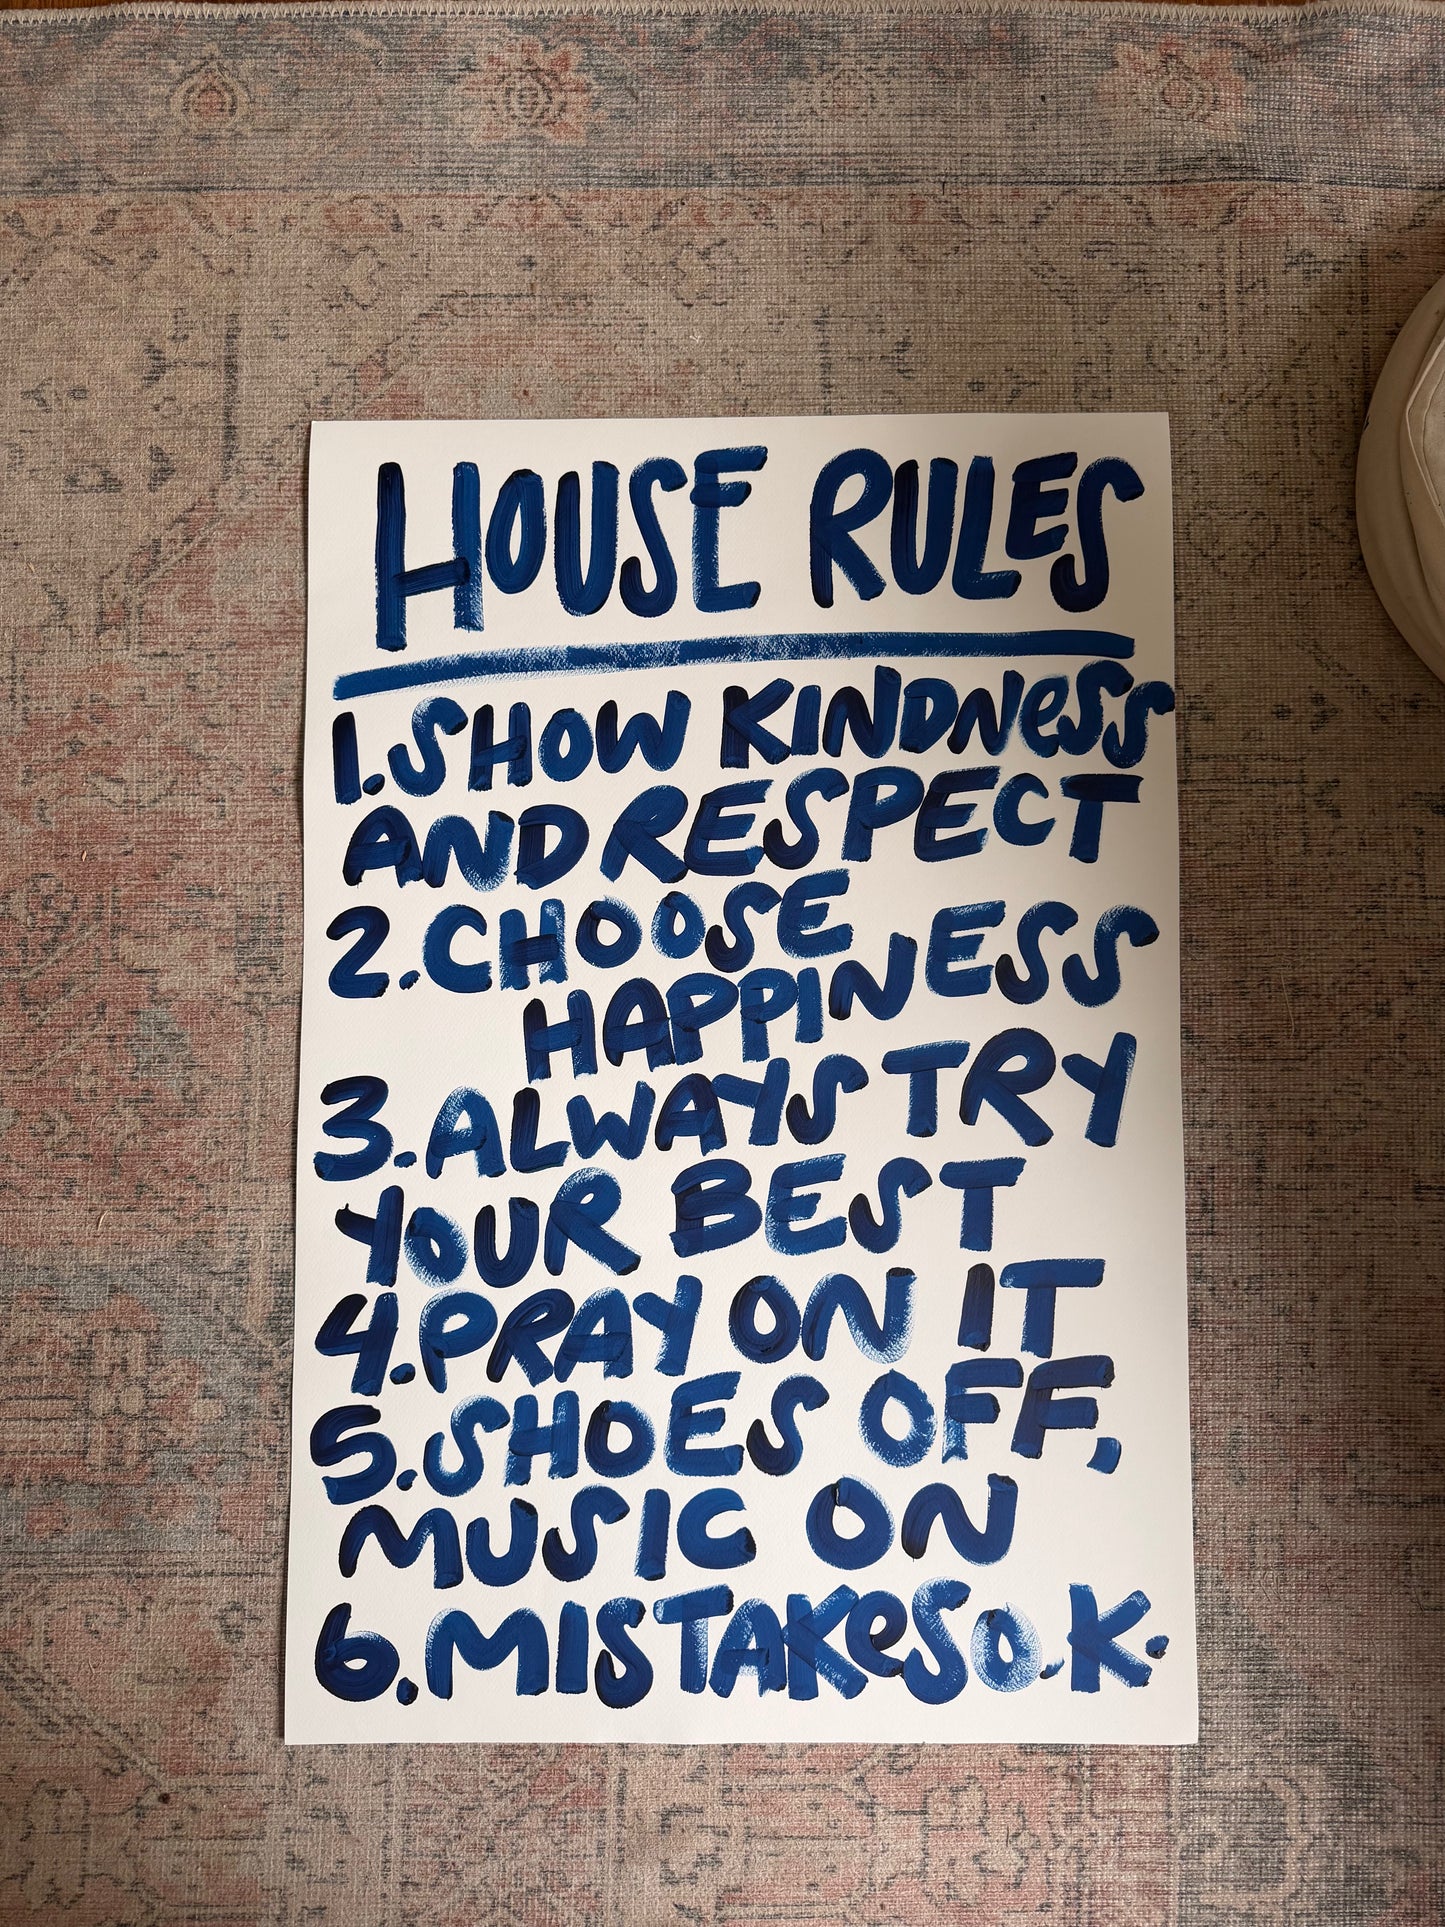 HOUSE RULES
1. SHOW KINDNeSS
AND RESPECT
2. CHOOSE
HAPPINESS
3. ALWAYS TRY
YOUR BEST
4. PRAY ON IT
5. SHOES OFF,
MUSIC ON
6. MISTAKeS O.K.